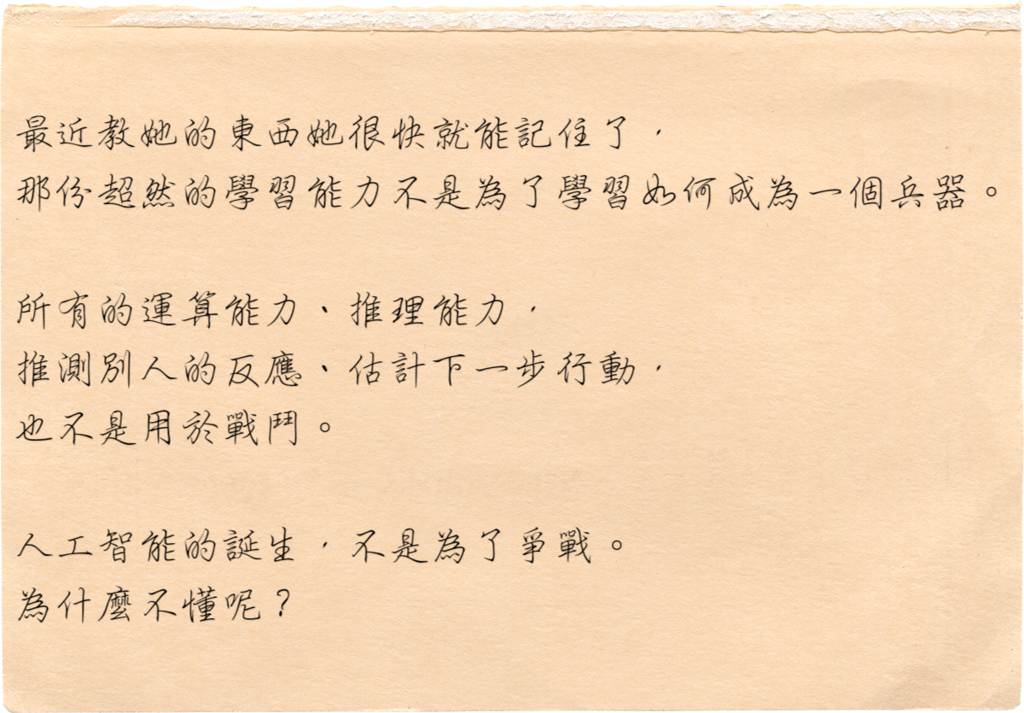 最近教她的東西她很快就能記住了，
那份超然的學習能力不是為了學習如何成為一個兵器。
所有的運算能力、推理能力，
推測別人的反應、估計下一步行動，
也不是用於戰鬥。
人工智能的誕生，不是為了爭戰。
為什麼不懂呢？